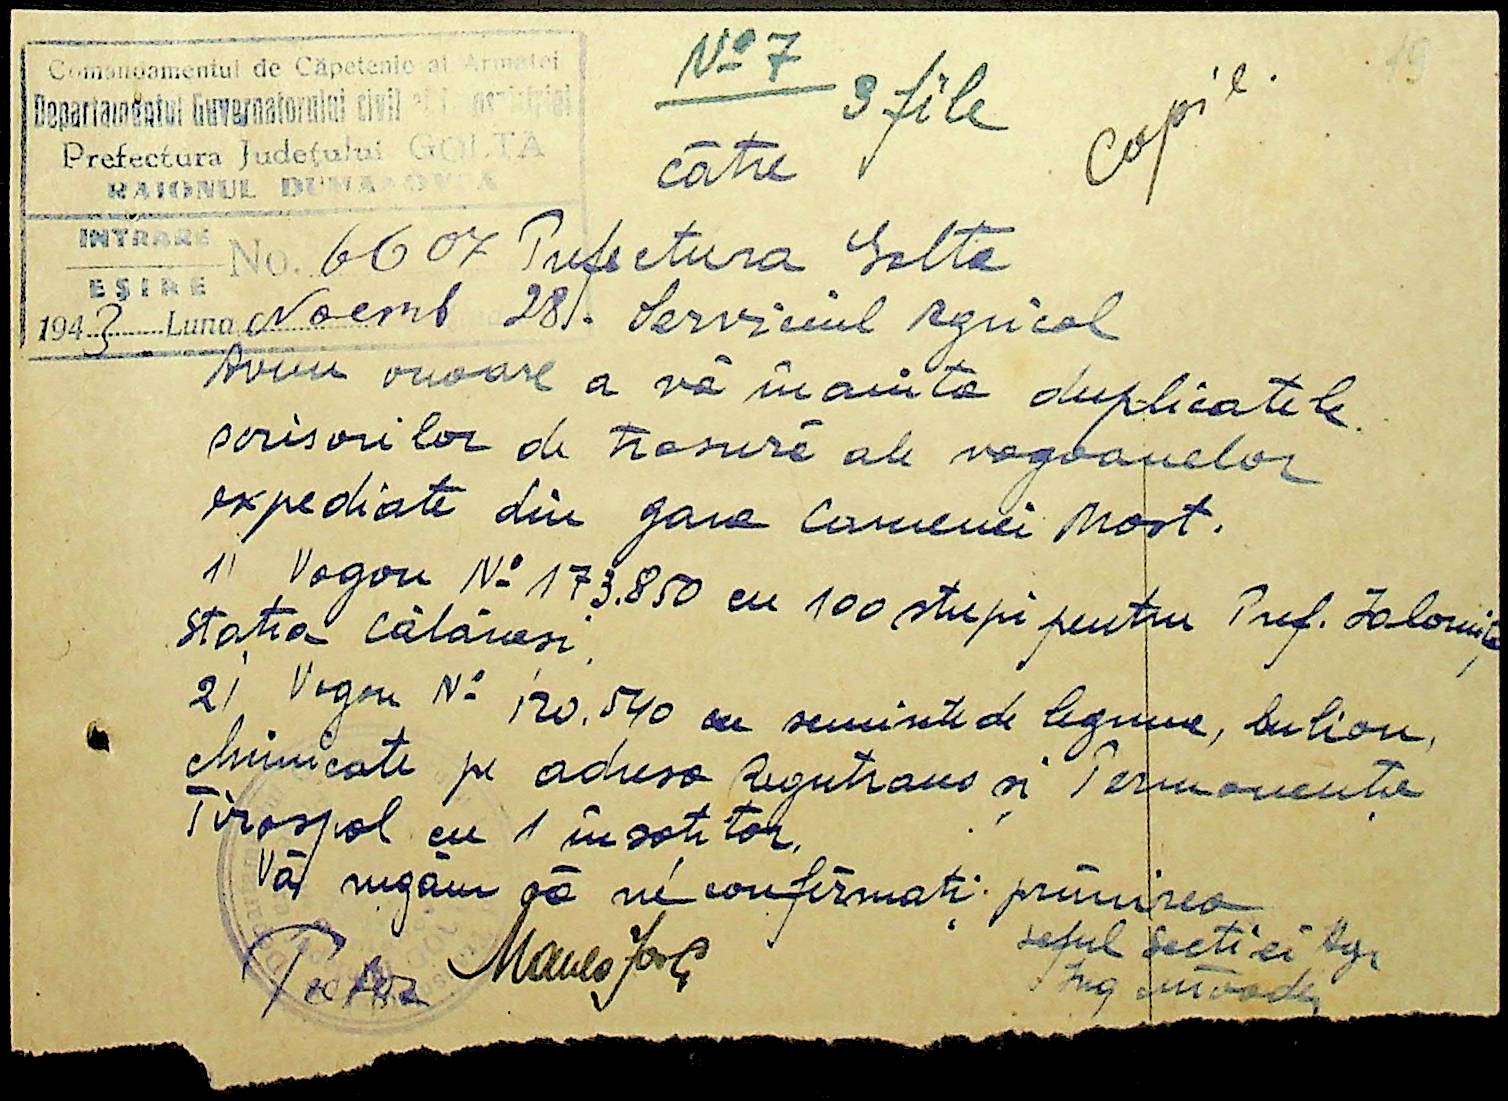 Comandamentul de Căpetenie al Armatei
Departamentul Guvernatorului civil al
Prefectura Județului GOLTA
RAIONUL
INTRARE
EȘIRE
No. 6607
1943 Luna Noemb 28
No 7
9 file
Copie
19
către
Prefectura Golta
Serviciul Agricol
Avem onoare a vă înainta duplicatele
scrisorilor de trasură ale vagoanelor
expediate din gara Camenei Most.
1) Vagon No 173.850 cu 100 stupi pentru Pref. Ialomița
stația Călărași
2) Vagon No 120.540 cu seminte de legume, bulion,
chimicate pe adresa Regutrans și Permanența
Tiraspol cu 1 însotitor.
Vă rugăm să ne confirmați primirea
Pretor
șeful Secției Agr
Ing